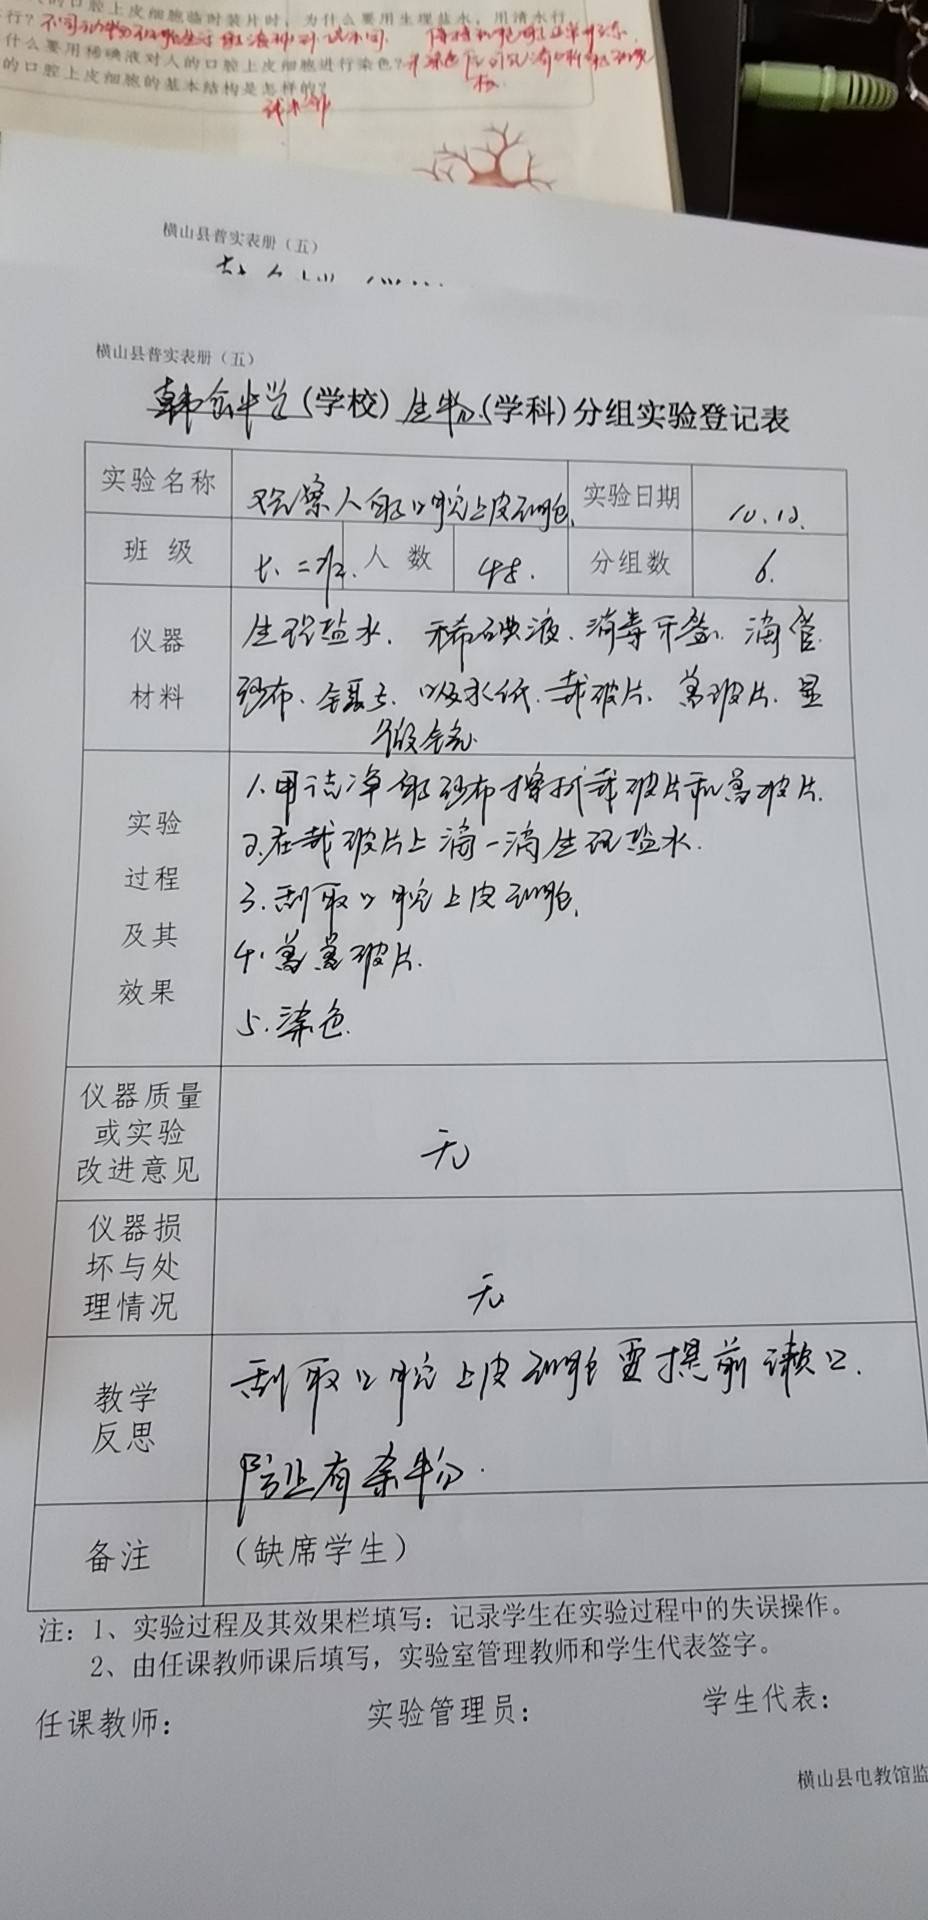 的口腔上皮细胞临时装片时，为什么要用生理盐水，用清水行
行？
什么要用稀碘液对人的口腔上皮细胞进行染色？
的口腔上皮细胞的基本结构是怎样的？
横山县普实表册（五）
横山县普实表册（五）
中学(学校) 生物(学科)分组实验登记表
实验名称 观察人的口腔上皮细胞. 实验日期 10.12.
班 级 七.二班 人 数 48. 分组数 6.
仪器材料
生理盐水. 稀碘液. 消毒牙签. 滴管.
纱布. 镊子. 吸水纸. 载玻片. 盖玻片. 显
微镜.
实验过程及其效果
1.用洁净的纱布擦拭载玻片和盖玻片.
2.在载玻片上滴一滴生理盐水.
3.刮取口腔上皮细胞.
4.盖盖玻片.
5.染色.
仪器质量或实验改进意见
无
仪器损坏与处理情况
无
教学反思
刮取口腔上皮细胞要提前漱口.
防止有杂物.
备注 （缺席学生）
注：1、实验过程及其效果栏填写：记录学生在实验过程中的失误操作。
2、由任课教师课后填写，实验室管理教师和学生代表签字。
任课教师： 实验管理员： 学生代表：
横山县电教馆监